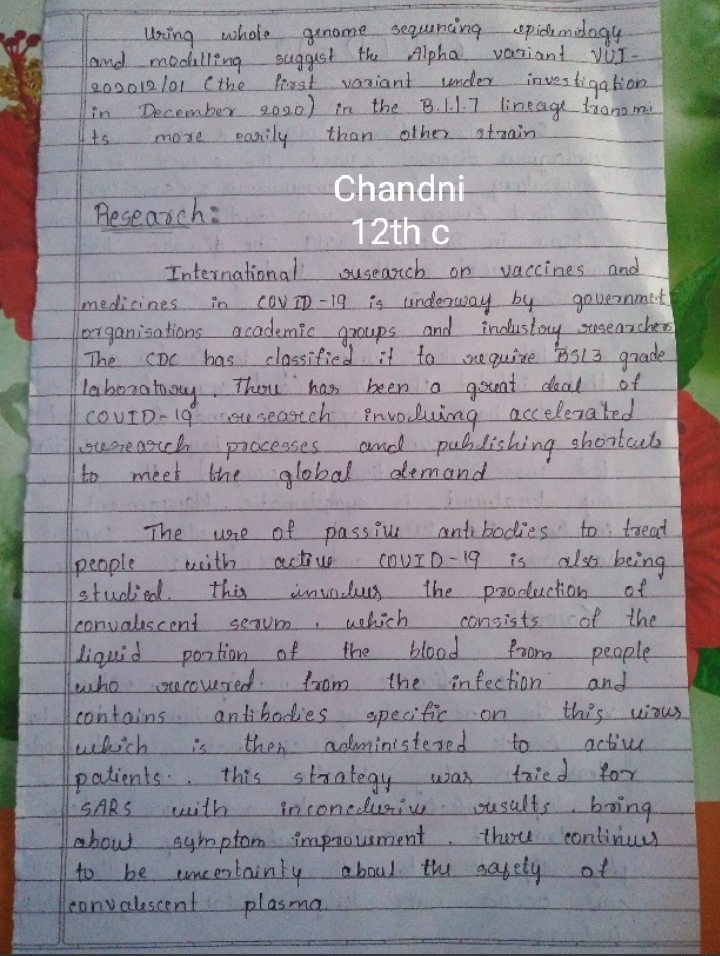 Using whole genome sequencing epidemidogy
and modelling suggest the Alpha variant VUI-
202012/01 (the first variant under investigation
in December 2020) in the B.1.1.7 lineage transmi
ts more easily than other strain
Chandni
12th c
Research:
International research on vaccines and
medicines in COVID-19 is underway by government
organisations academic groups and industory researchers
The CDC has classified it to require BSL3 grade
laboratory. There has been a great deal of
COVID-19 research involving accelerated
research processes and publishing shortcuts
to meet the global demand
The use of passive antibodies to treat
people with active COVID-19 is also being
studied. This involves the production of
convalescent serum, which consists of the
liquid portion of the blood from people
who recovered from the infection and
contains antibodies specific on this virus
which is then administered to active
patients. This strategy was tried for
SARS with inconclusive results. bring
about symptom improvement. there continues
to be uncertainty about the safety of
convalescent plasma.